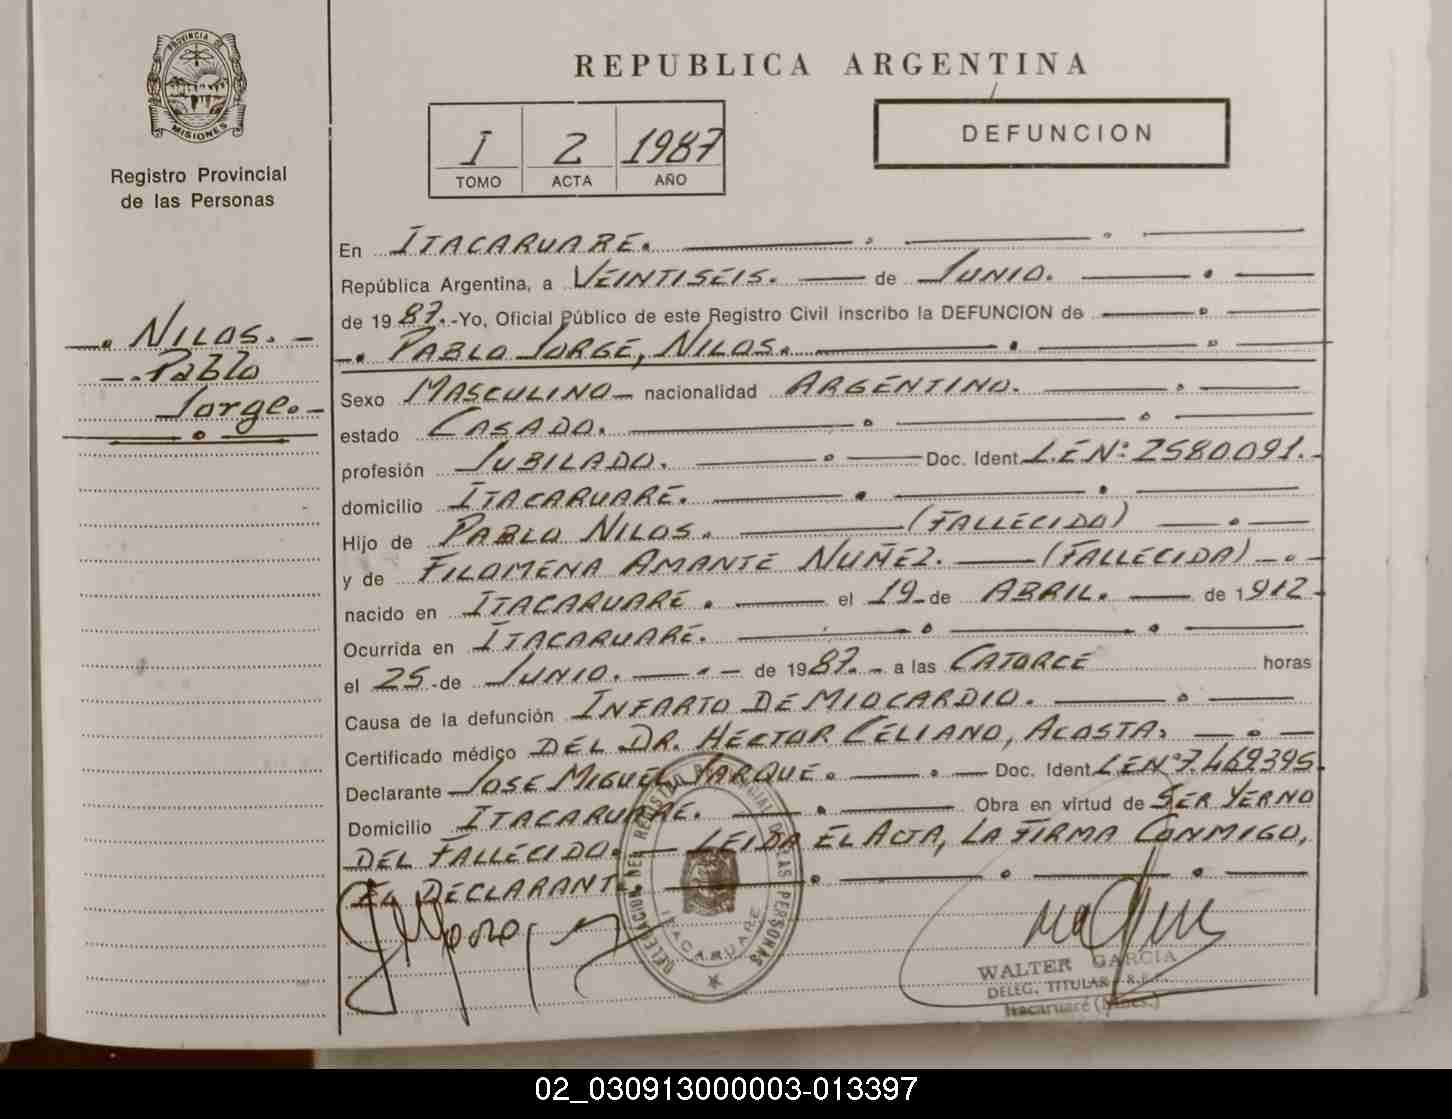 PROVINCIA DE
MISIONES
Registro Provincial
de las Personas
REPUBLICA ARGENTINA
I 2 1987
TOMO ACTA AÑO
DEFUNCION
NILOS.
Pablo
Jorge.
En ITACARUARE.
República Argentina, a VEINTISEIS. de JUNIO.
de 1987.-Yo, Oficial Público de este Registro Civil inscribo la DEFUNCION de
PABLO JORGE, NILOS.
Sexo MASCULINO nacionalidad ARGENTINO.
estado CASADO.
profesión JUBILADO. Doc. Ident. L.E Nº: 2580091.-
domicilio ITACARUARE.
Hijo de PABLO NILOS. (FALLECIDO)
y de FILOMENA AMANTE NUÑEZ. (FALLECIDA)
nacido en ITACARUARE. el 19 de ABRIL. de 1912
Ocurrida en ITACARUARE.
el 25 de JUNIO. de 1987.- a las CATORCE horas
Causa de la defunción INFARTO DE MIOCARDIO.
Certificado médico DEL DR. HECTOR CELIANO, ACOSTA.
Declarante JOSE MIGUEL YARQUE. Doc. Ident. L.E Nº 7.469.395.
Domicilio ITACARUARE. Obra en virtud de SER YERNO
DEL FALLECIDO. LEIDA EL ACTA, LA FIRMA CONMIGO,
EL DECLARANTE
DELEGACION DEL REGISTRO PROVINCIAL DE LAS PERSONAS
ITACARUARE
WALTER GARCIA
DELEG. TITULAR R.P.P.
Itacaruaré (Mnes.)
02_030913000003-013397